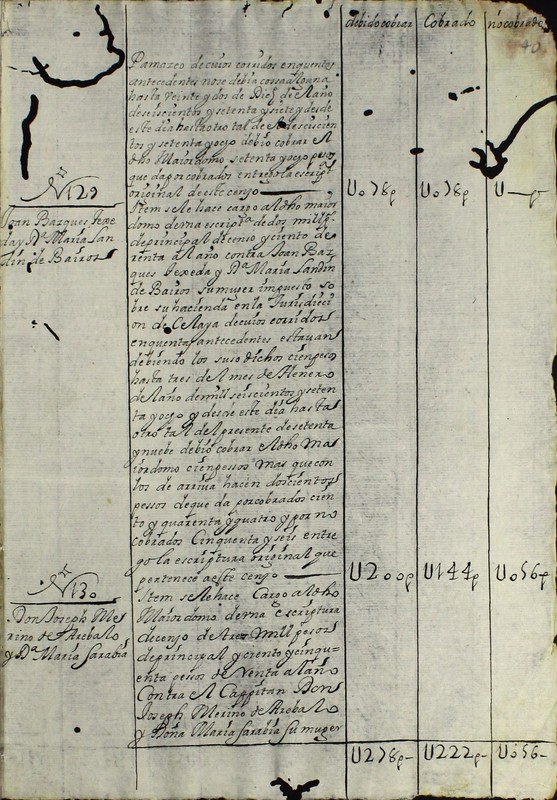 debido cobrar Cobrado no cobrado
40
Pamazeo de cuios corridos en quentas
antecedentes no se debia cossa alguna
hasta Veinte y dos de Diz.e de el año
de seiscientos y setenta y siete y desde
este dia hasta otro tal de el de seiscien
tos y setenta y ocho debio cobrar el
dho Maiordomo setenta y ocho pesos
que da por cobrados entrego la escript.
original de este censo U078p U078p U—p
N 129
Joan Bazques Texe
da y D.a Maria Lan
din de Bairos
Item se le hace cargo al dho maior
domo de vna escript.a de dos mill p.s
de principal de censo y ciento de
renta al año contra Joan Baz
ques Texeda y D.a Maria Landin
de Bairos su muxer impuesto so
bre su hacienda en la Jurisdicci
on de Celaya de cuios corridos
en quentas antecedentes estavan
debiendo los susodichos cien pesos
hasta tres de el mes de Henero
de el año de mil seiscientos y seten
ta y ocho y desde este dia hasta
otro tal del presente de setenta
y nuebe debio cobrar el dho ma
iordomo cien pessos mas que con
los de arriva hacen doscientos
pessos de que da por cobrados cien
to y quarenta y quatro y por no
cobrados Cinquenta y seis entre
go la escriptura original que
pertenece a este censo U200p U144p U056p
N 130
Don Joseph Me
rino de Arebalo
y D.a Maria Sarabia
Item se le hace Cargo al dho
Maiordomo de vna escriptura
de censo de Tres mill pesos
de principal y ciento y cinqu=
enta pesos de Renta al año
Contra el Cappitan Don
Joseph Merino de Arebalo
y Doña Maria Sarabia su muger
U278p U222p U056